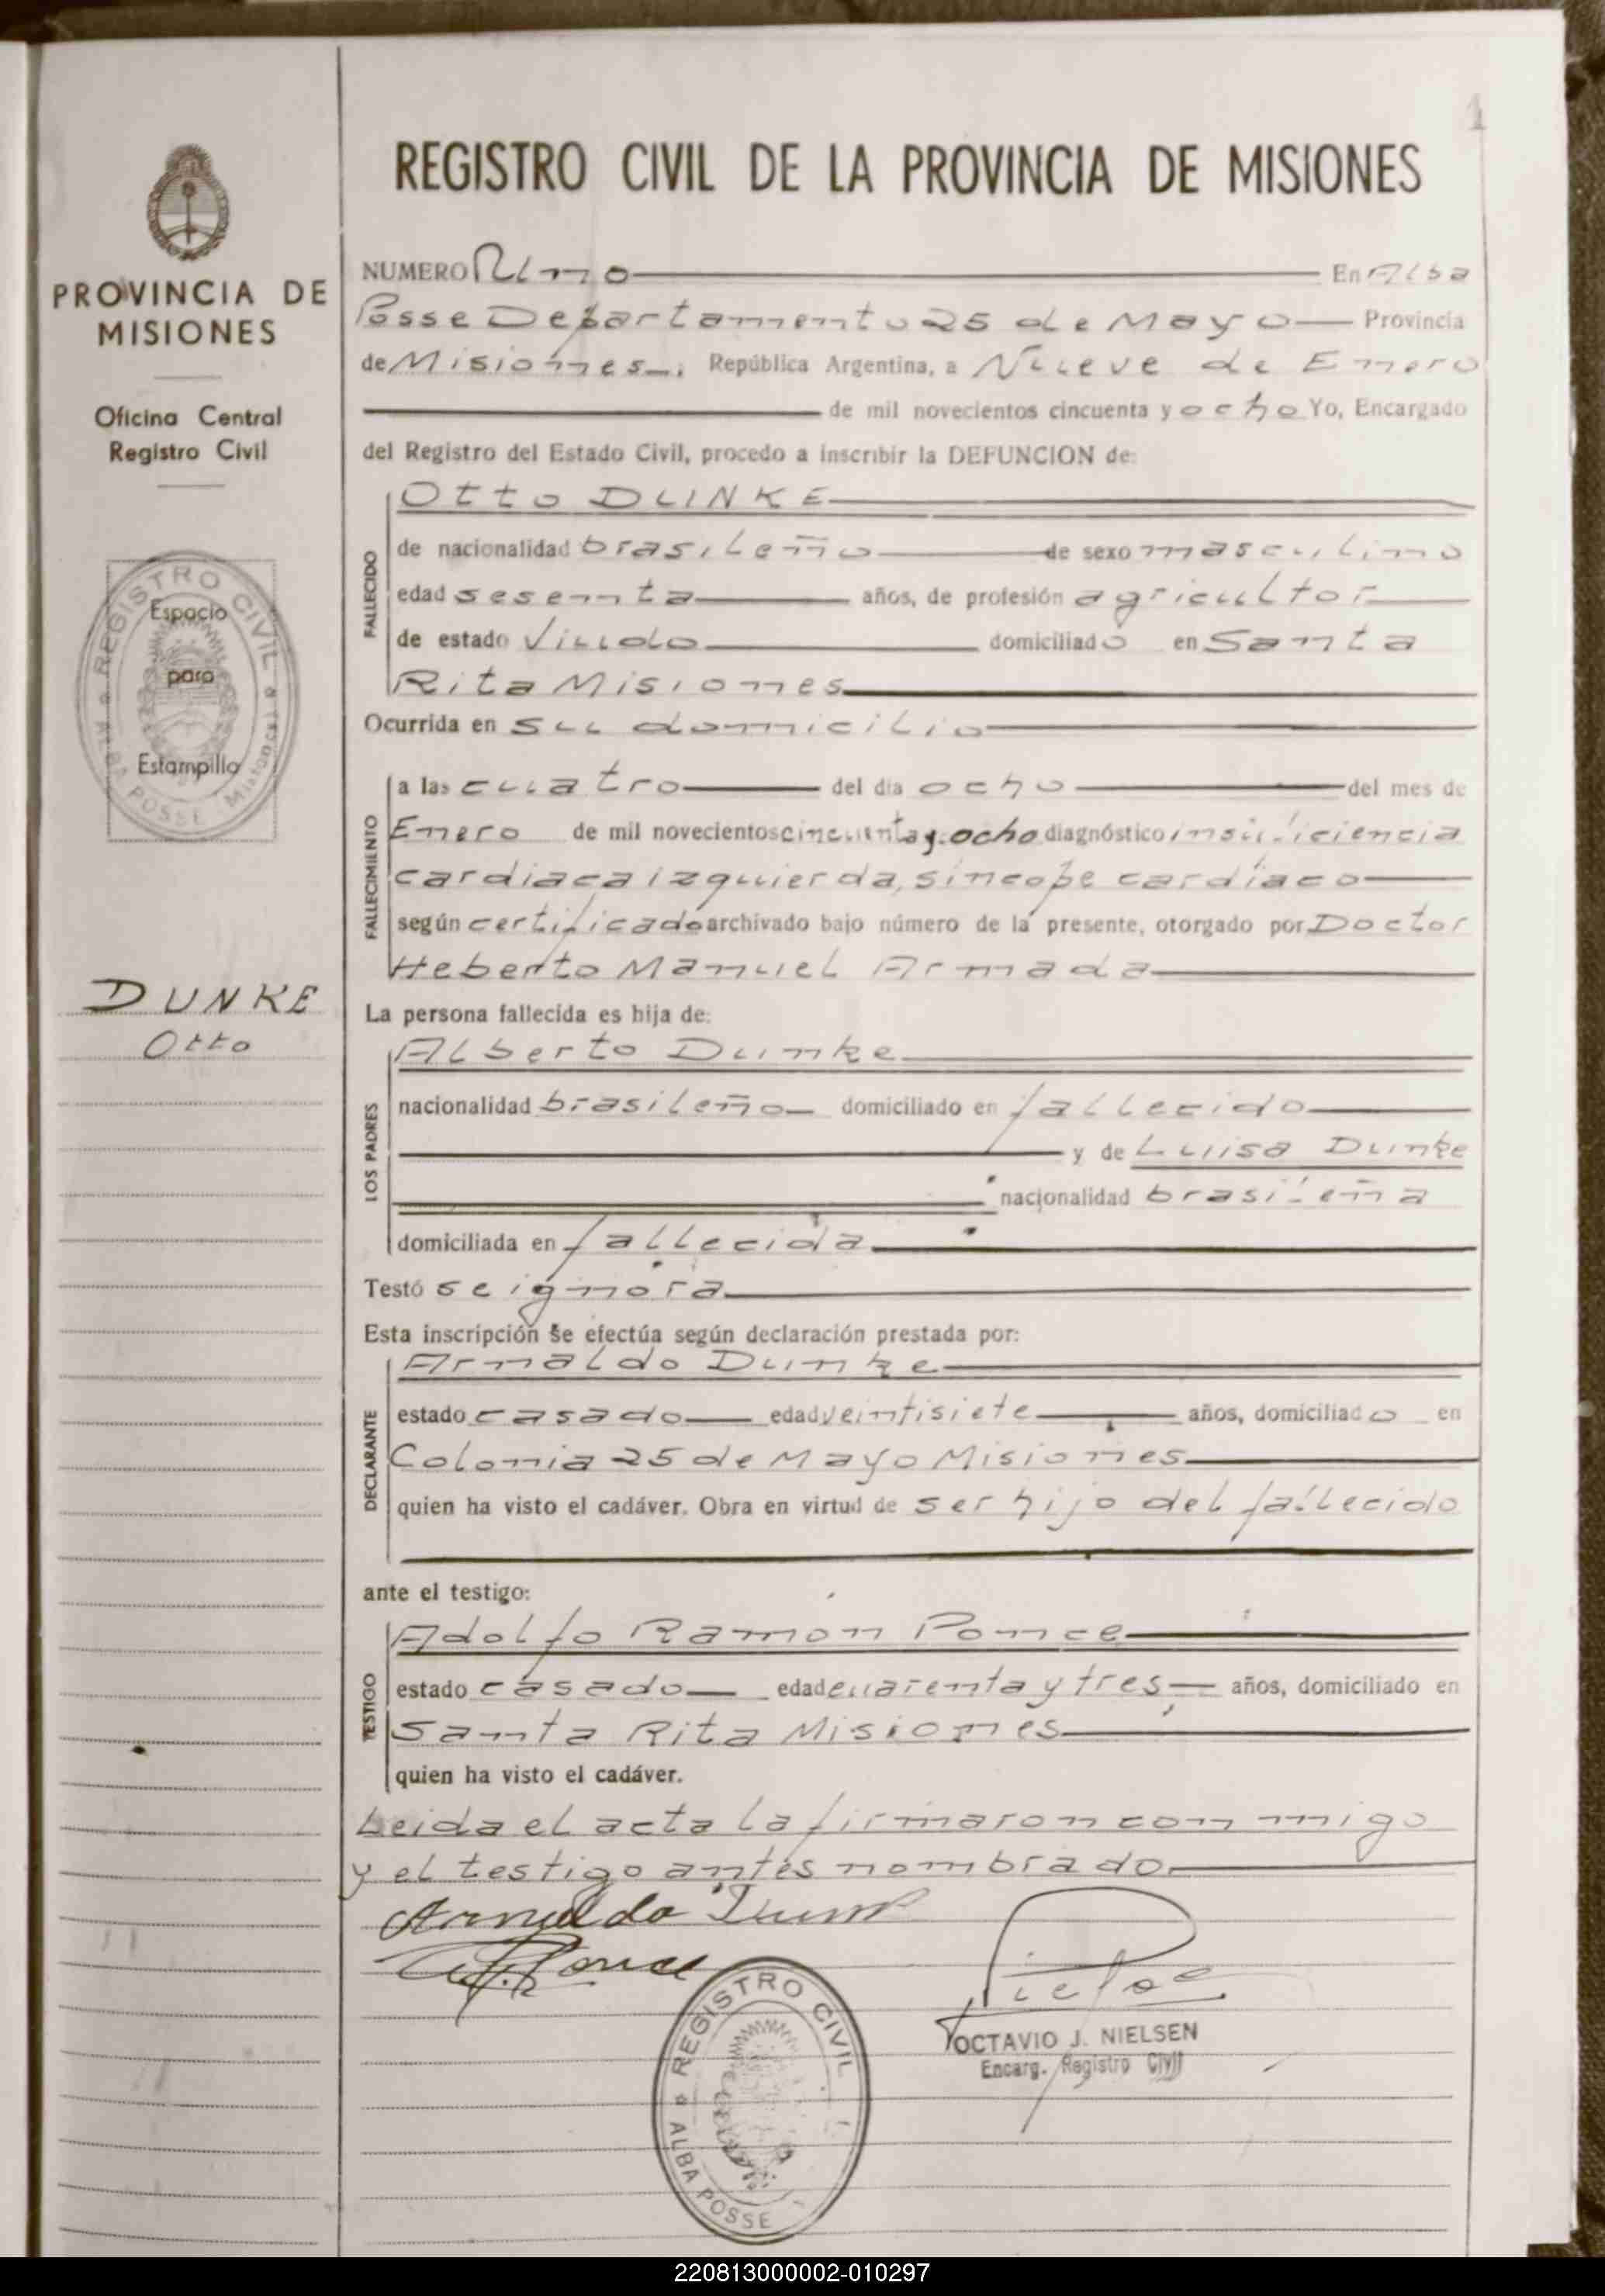 1
REGISTRO CIVIL DE LA PROVINCIA DE MISIONES
PROVINCIA DE
MISIONES
Oficina Central
Registro Civil
REGISTRO CIVIL
Espacio
para
Estampilla
ALBA POSSE Misiones
DUNKE
Otto
NUMERO Uno En Alba
Posse Departamento 25 de Mayo Provincia
de Misiones República Argentina, a Nueve de Enero
de mil novecientos cincuenta y ocho Yo, Encargado
del Registro del Estado Civil, procedo a inscribir la DEFUNCION de:
FALLECIDO
Otto DUNKE
de nacionalidad brasileño de sexo masculino
edad sesenta años, de profesión agricultor
de estado Viudo domiciliado en Santa
Rita Misiones
Ocurrida en su domicilio
FALLECIMIENTO
a las cuatro del día ocho del mes de
Enero de mil novecientos cincuenta y ocho diagnóstico insuficiencia
cardiaca izquierda, sincope cardíaco
según certificado archivado bajo número de la presente, otorgado por Doctor
Heberto Manuel Armada
La persona fallecida es hija de:
LOS PADRES
Alberto Dunke
nacionalidad brasileño domiciliado en fallecido
y de Luisa Dunke
nacionalidad brasileña
domiciliada en fallecida
Testó se ignora
Esta inscripción se efectúa según declaración prestada por:
DECLARANTE
Arnaldo Dunke
estado casado edad veintisiete años, domiciliado en
Colonia 25 de Mayo Misiones
quien ha visto el cadáver. Obra en virtud de ser hijo del fallecido
ante el testigo:
TESTIGO
Adolfo Ramón Ponce
estado casado edad cuarenta y tres años, domiciliado en
Santa Rita Misiones
quien ha visto el cadáver.
Leida el acta la firmaron con migo
y el testigo antes nombrado
Arnaldo
Ponce
OCTAVIO J. NIELSEN
Encarg. Registro Civil
REGISTRO CIVIL
ALBA POSSE
220813000002-010297